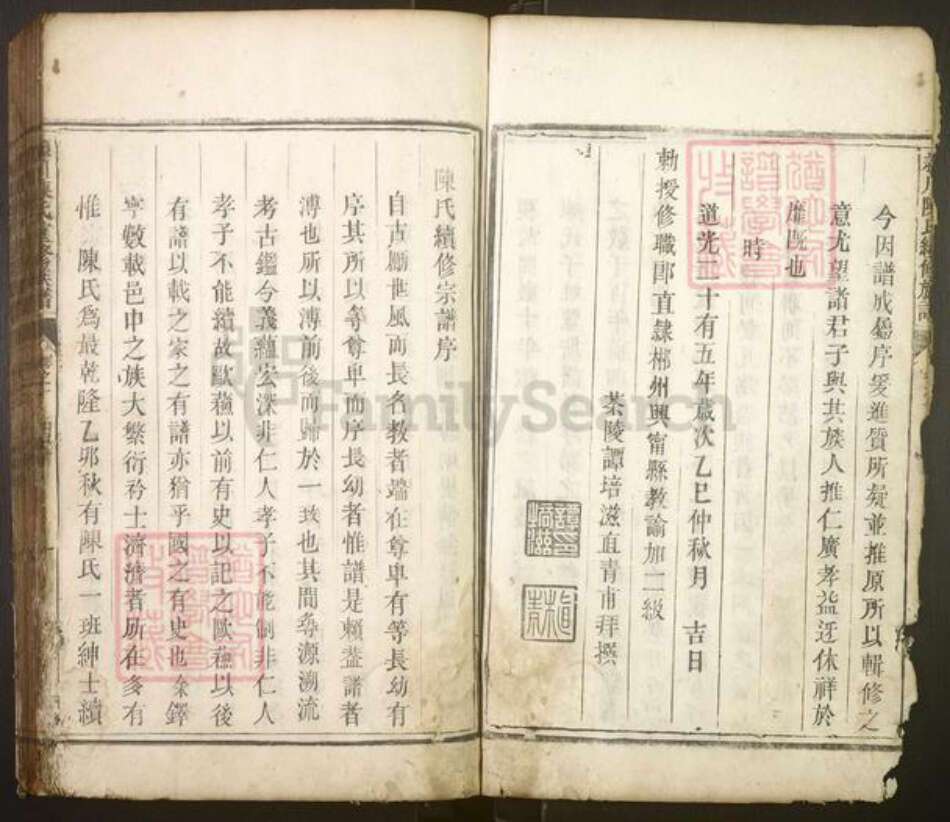 今因譜成屬序爰進質所疑並推原所以輯修之
意尤望諸君子與其族人推仁廣孝益迓休祥於
靡既也
時
道光二十有五年歲次乙巳仲秋月　吉日
勅授修職郎直隸郴州興甯縣教諭加二級
茶陵譚培滋直青甫拜撰
陳氏續修宗譜序
自古勵世風而長名教者端在尊卑有等長幼有
序其所以等尊卑而序長幼者惟譜是賴蓋譜者
溥也所以溥前後而歸於一致也其間尋源溯流
考古鑑今義蘊宏深非仁人孝子不能制非仁人
孝子不能續故歐蘇以前有史以記之歐蘇以後
有譜以載之家之有譜亦猶乎國之有史也余鐸
寧數載邑中之族大繁衍衿士濟濟者所在多有
惟 陳氏爲最乾隆乙卯秋有陳氏一班紳士續
FamilySearch